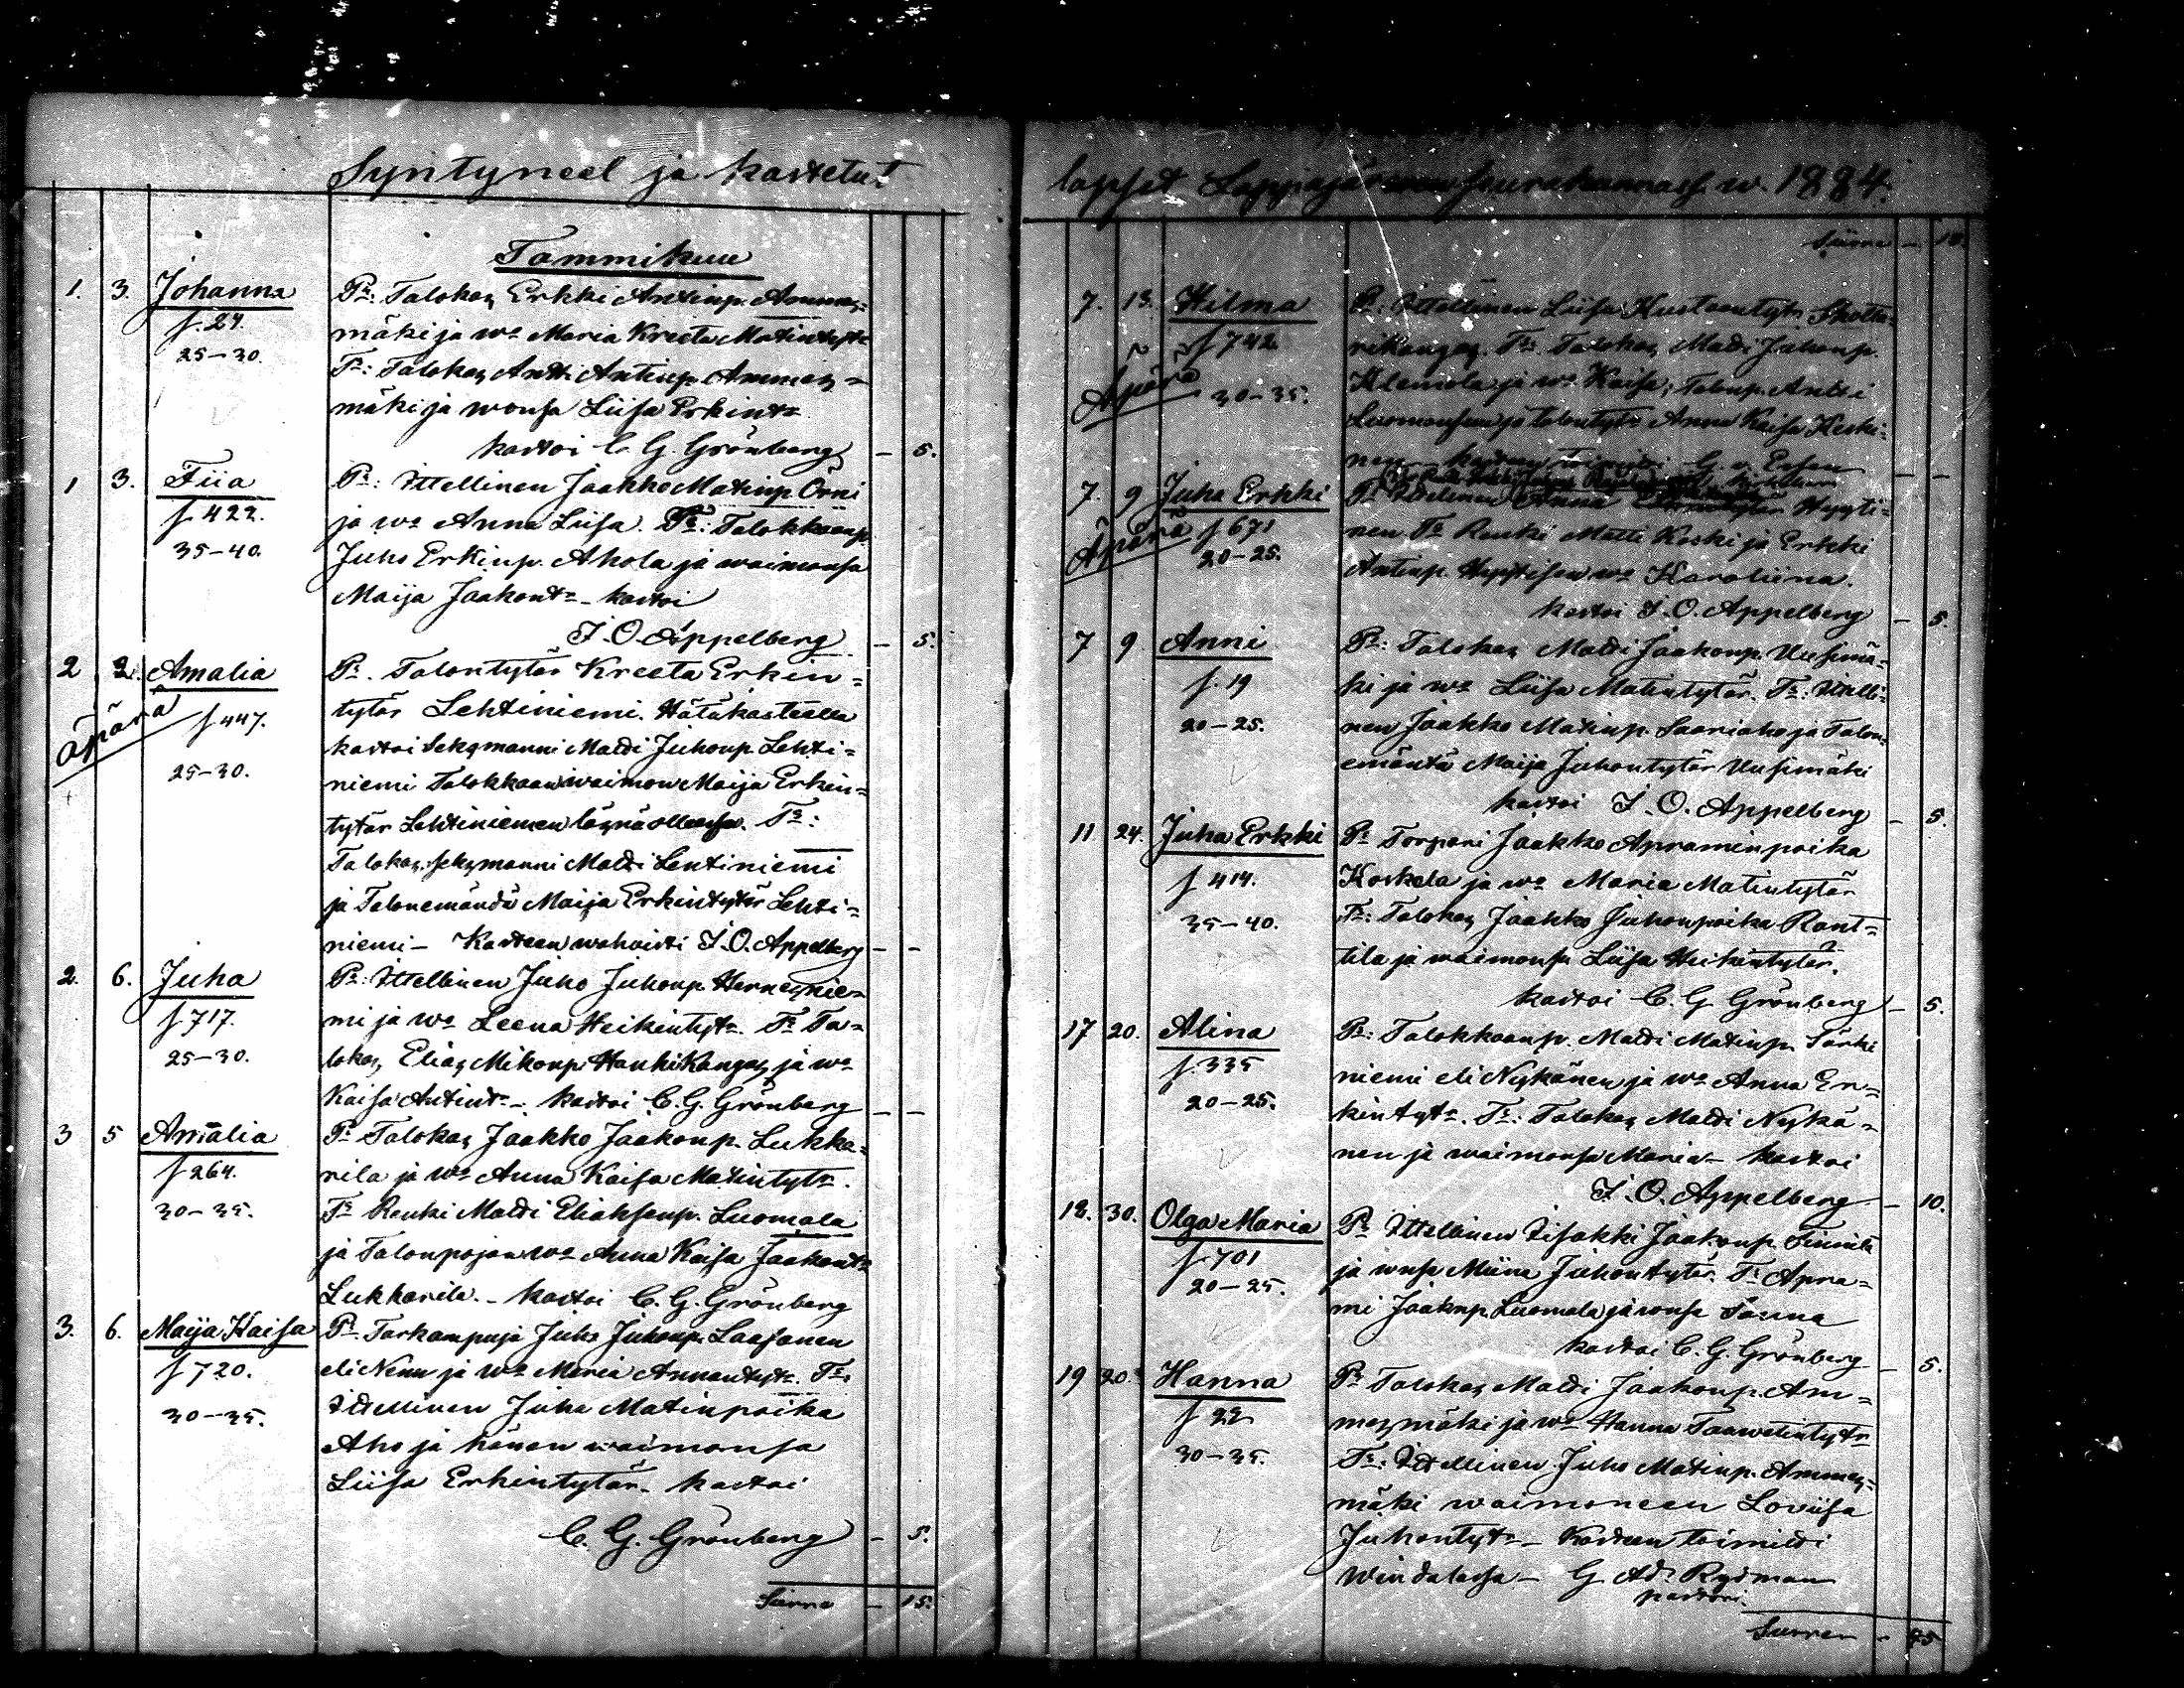 Syntyneet ja kastetut
Tammikuu
1. 3. Johanna
f. 24.
25-30.
Pr: Talokas Erkki Antinp. Ammes=
mäki ja wo Maria Kreeta Matintytr
Tr: Talokas Antti Antinp. Ammes=
mäki ja wonsa Liisa Erkintr
kastoi C. G. Grönberg – 5.
1 3. Fiia
f. 422.
35-40.
Pr: Ittellinen Jaakko Matinp. Örni
ja wo Anna Liisa. Tr: Talokkaanp.
Juho Erkinp. Ahola ja waimonsa
Maija Jaakontr – kastoi
J. O. Appelberg – 5.
2 2. Amalia
äpärä
f 447.
25-30.
Pr. Talontytär Kreeta Erkin=
tytär Lehtiniemi. Hätäkasteella
kastoi Seksmanni Matti Juhonp. Lehti=
niemi Talokkaan waimon Maija Erkin=
tytär Lehtiniemen läsnä ollessa. Tr:
Talokas, seksmanni Matti Lentiniemi
ja Talonemäntä Maija Erkintytär Lehti=
niemi – Kasteen wahwisti J. O. Appelberg – –
2. 6. Juha
f 717.
25-30.
Pr: Ittellinen Juho Juhonp. Hernesnie=
mi ja wo Leena Heikintytr. Tr Ta=
lokas Elias Mikonp. Hankikangas ja wo
Kaisa Antintr – kastoi C. G. Grönberg – –
3 5 Amalia
f 264.
30-35.
Pr Talokas Jaakko Jaakonp. Lukka=
rila ja wo Anna Kaisa Matintytr.
Tr Renki Matti Eliaksenp. Luomala
ja Talonpojan wo Anna Kaisa Jaakontr
Lukkarila. – kastoi C. G. Grönberg
3. 6. Maija Kaisa
f 720.
30-35.
Pr. Tarkampuja Juho Juhonp. Laasanen
eli Nenn ja wo Maria Annantytr. Tr.
Ittellinen Juha Matinpoika
Aho ja hänen waimonsa
Liisa Erkintytär. kastoi
C. G. Grönberg – 5.
Siirre – 15.
lapset Lappajärwen seurakunnass. w. 1884.
Siirre –
7. 13. Hilma
f 742
Äpärä
30-35.
Pr: Ittellinen Liisa Kustaantytr.
Tr. Talokas Matti Juhonp.
Klemola ja wo Kaisa; Talonp. Antti
ja talontytr Anna Kaisa Keski=
nen –
7. 9 Juha Erkki
f 671
Äpärä
20-25.
Pr Ittellinen Anna Hyyti=
nen Tr Renki Matti Koski ja Erkki
Antinp. Hyytisen wo Karoliina.
kastoi J. O. Appelberg – 5.
7 9 Anni
f. 19
20-25.
Pr: Talokas Matti Jaakonp. Uusimä=
ki ja wo Liisa Matintytär. Tr: Ittelli=
nen Jaakko Matinp. Saariaho ja Talon=
emäntä Maija Juhontytär Uusimäki
kastoi J. O. Appelberg – 5.
11 24. Juha Erkki
f 414.
35-40.
Pr Torpari Jaakko Apraminpoika
Koskela ja wo Maria Matintytär
Tr: Talokas Jaakko Juhonpoika Rant=
tila ja waimonsa Liisa Heikintytär.
kastoi C. G. Grönberg – 5.
17 20. Alina
f. 335
20-25.
Pr: Talokkaanp. Matti Matinp. Särki
niemi eli Nykänen ja wo Anna Er=
kintytr. Tr: Talokas Matti Nykä=
nen ja waimonsa Maria – kastoi
J. O. Appelberg – 10.
18. 30. Olga Maria
f 701
20-25.
Pr Ittellinen Iisakki Jaakonp.
ja wnsa Miina Juhontytär. Tr Apra=
mi Jaakonp. Luomala ja wonsa Sanna
kastoi C. G. Grönberg – 5.
19 20. Hanna
f 22
30-35.
Pr Talokas Matti Jaakonp. Am=
mesmäki ja wo Hanna Taawetintytr
Tr: Ittellinen Juho Matinp. Ammes=
mäki waimoneen Loviisa
Juhontytr – Kasteen toimitti
Windalassa – G. Ad. Rydman
pastori.
Siirre –